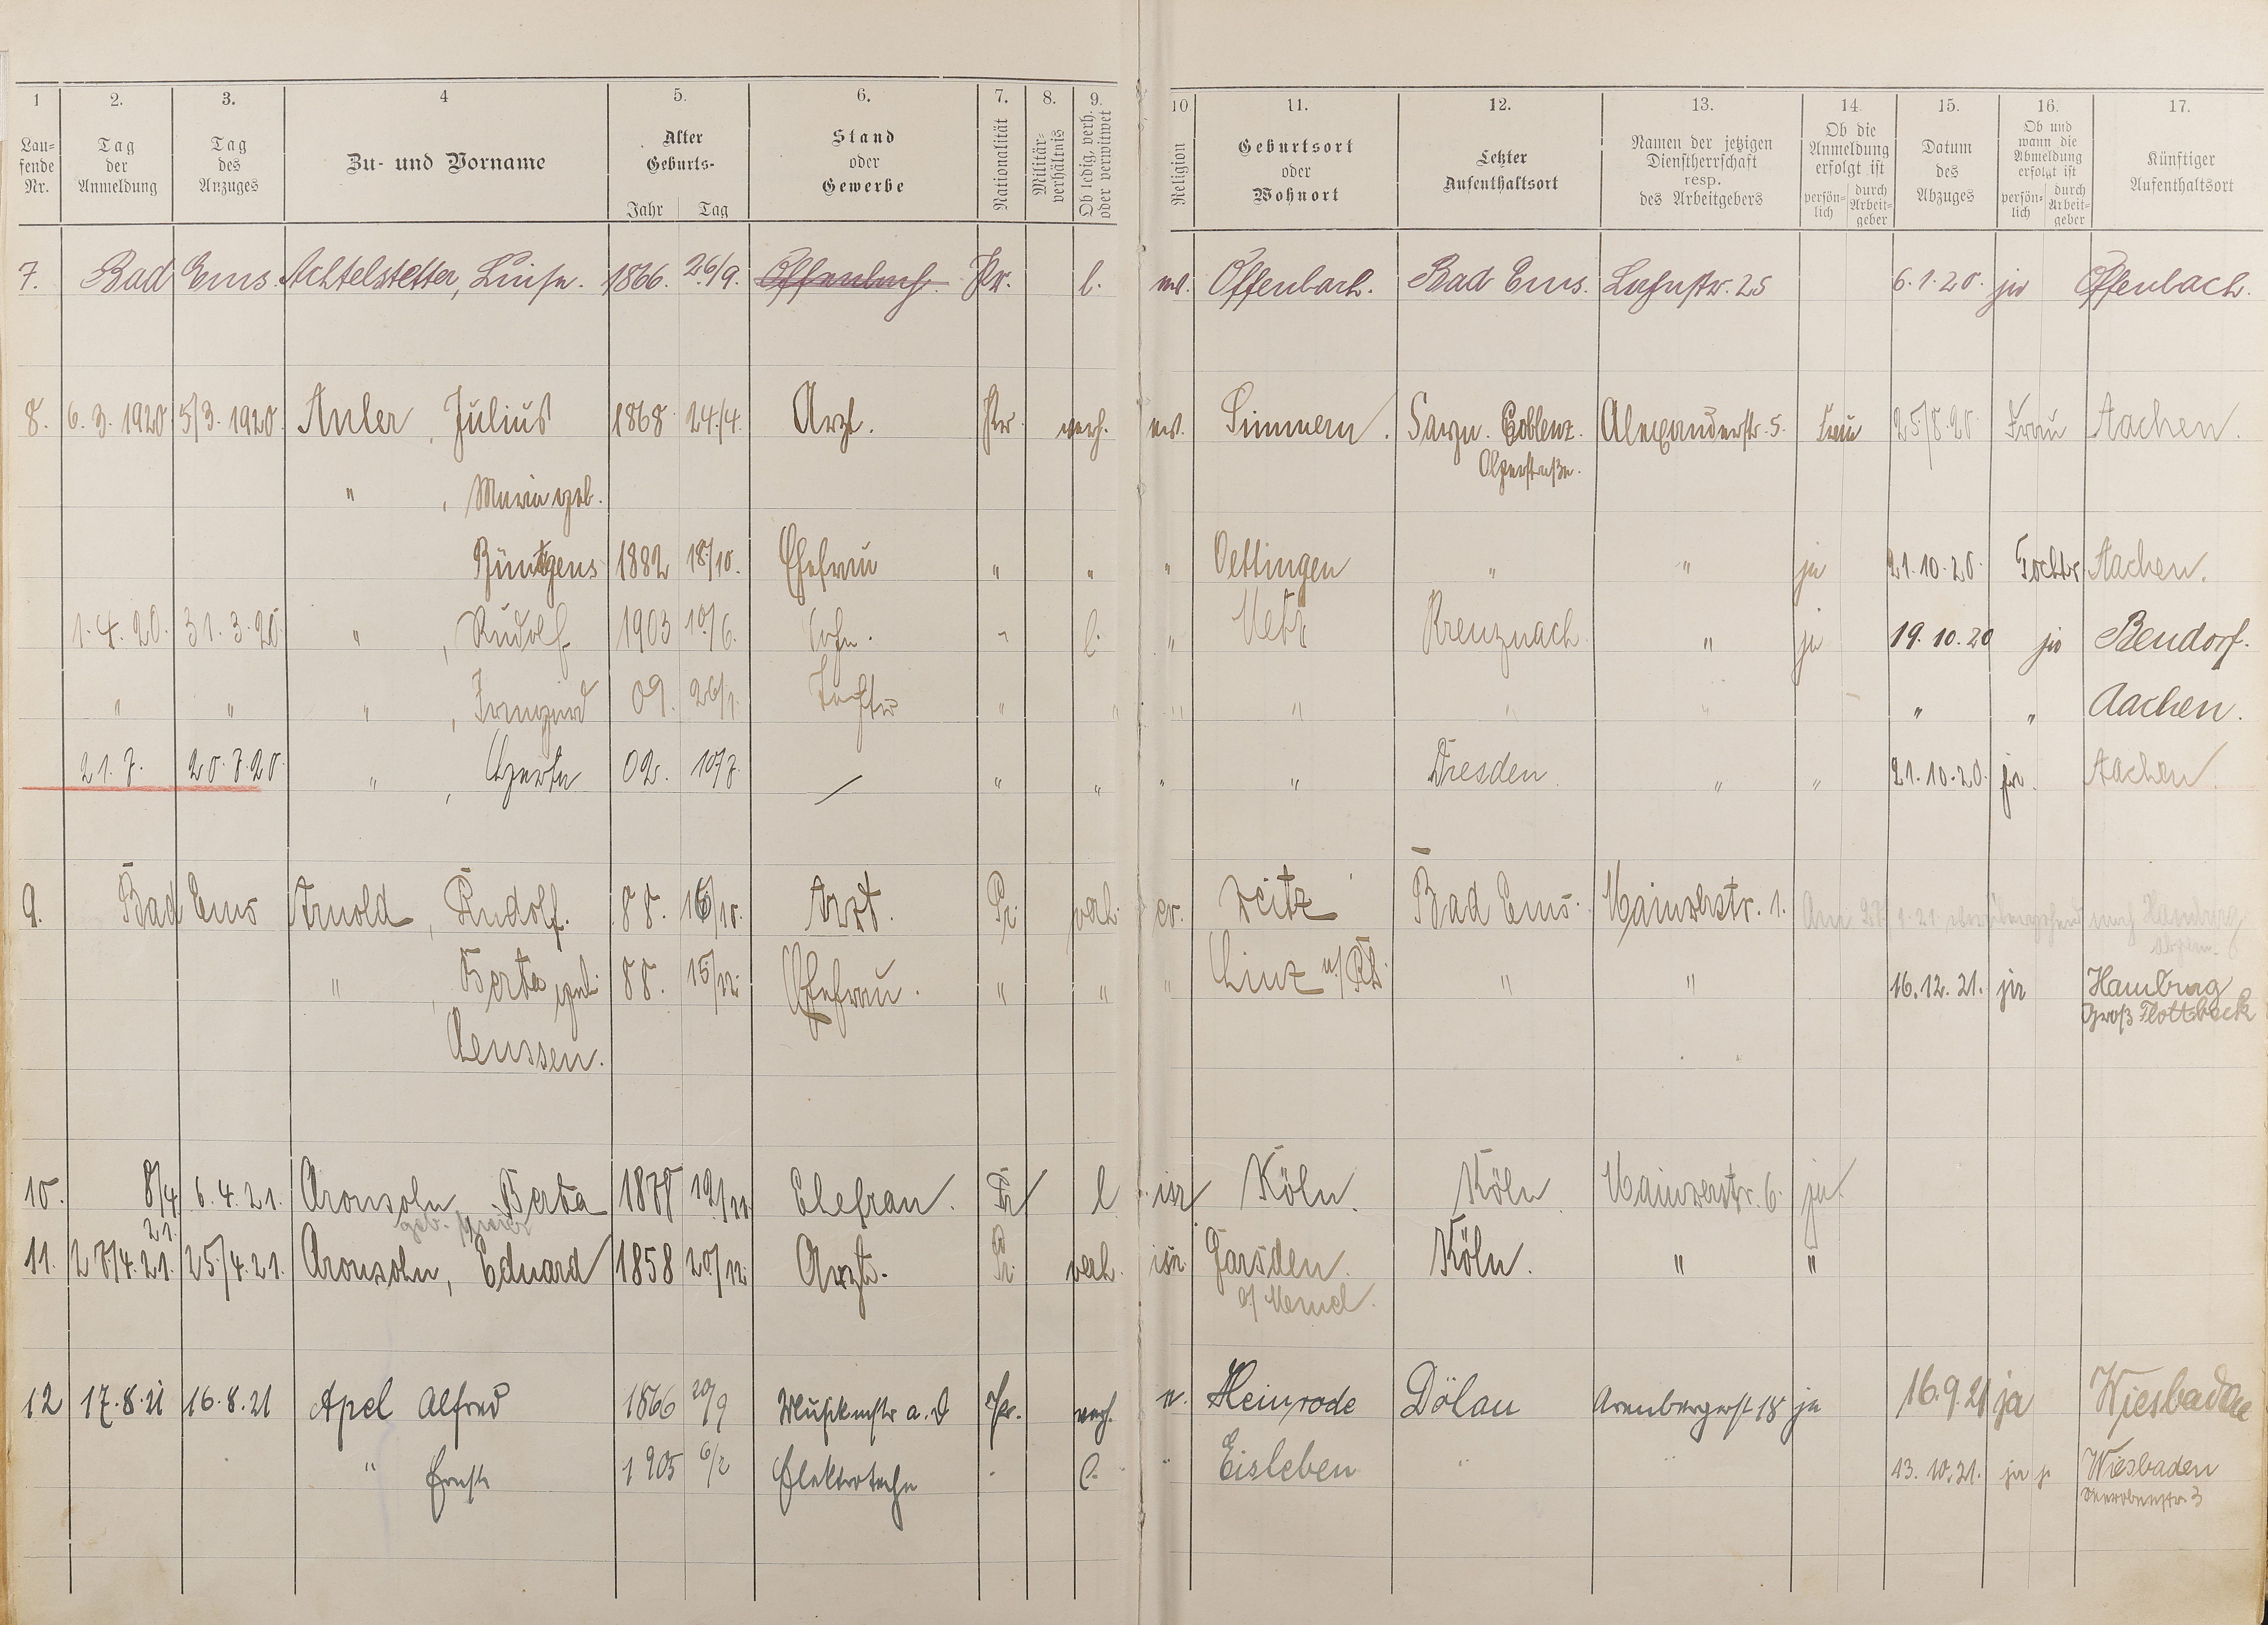 1 2. 3. 4 5. 6. 7. 8. 9. 10 11. 12. 13. 14. 15. 16. 17.
Lau-
fende
Nr.
Tag
der
Anmeldung
Tag
des
Anzuges
Zu- und Vorname
Alter
Geburts-
Jahr Tag
Stand
oder
Gewerbe
Nationalität
Militär-
verhältnis
Ob ledig, verh.
oder verwitwet
Religion
Geburtsort
oder
Wohnort
Letzter
Aufenthaltsort
Namen der jetzigen
Dienstherrschaft
resp.
des Arbeitgebers
Ob die
Anmeldung
erfolgt ist
persön-
lich
durch
Arbeit-
geber
Datum
des
Abzuges
Ob und
wann die
Abmeldung
erfolgt ist
persön-
lich
durch
Arbeit-
geber
Künftiger
Aufenthaltsort
7. Bad Ems. Achtelstetter, Luise. 1866. 26/9. Offenbach. Pr. l. Offenbach. Bad Ems. 25 6.1.20. ja Offenbach.
8. 6.3.1920 5/3.1920. Julius 1868 24./4. Arzt. Pr. verh. Simmern. Coblenz. Alexanderstr. 5. Frau 25/8.20 Frau Aachen.
" , Maria geb.
1882 18/10. Ehefrau " " " Oettingen " " ja 21.10.20. Tochter Aachen.
1.4.20. 31.3.20. " , Rudolf 1903 10/6. Sohn. " l. " Metz Kreuznach " ja 19.10.20 ja Bendorf.
" " " , Irmgard 09. 26/1. Tochter " " " " " " " " Aachen.
21.7. 20.7.20. " , Herta 02. 10/7. / " " " " Dresden. " " 21.10.20. ja. Aachen.
9. Bad Ems Arnold, Rudolf. 88. 16/10. Arzt. Pr. verh. ev. Zeitz Bad Ems. Mainzerstr. 1. nach Hamburg
" , Berta geb. 88. 15/12. Ehefrau. " " " Linz a/Rh. " " 16.12.21. ja Hamburg
Groß Flottbeck
10. 8/4 21. 6.4.21. Aronsohn Berta 1878 12/11. Ehefrau. Pr l isr Köln. Köln Mainzerstr. 6. ja.
geb.
11. 27/4.21. 25./4.21. Aronsohn, Eduard 1858 20/12. Arzt. Pr. verh. isr. Garsden. Köln. " "
a/Memel.
12 17.8.21 16.8.21 Apel Alfred 1866 20/9 a. D Pr. verh. Dölau Arenbergerst 18 ja 16.9.21 ja Wiesbaden
" Ernst 1905 6/2 Elektrotechn " l. " Eisleben " " 13.10.21. ja Wiesbaden